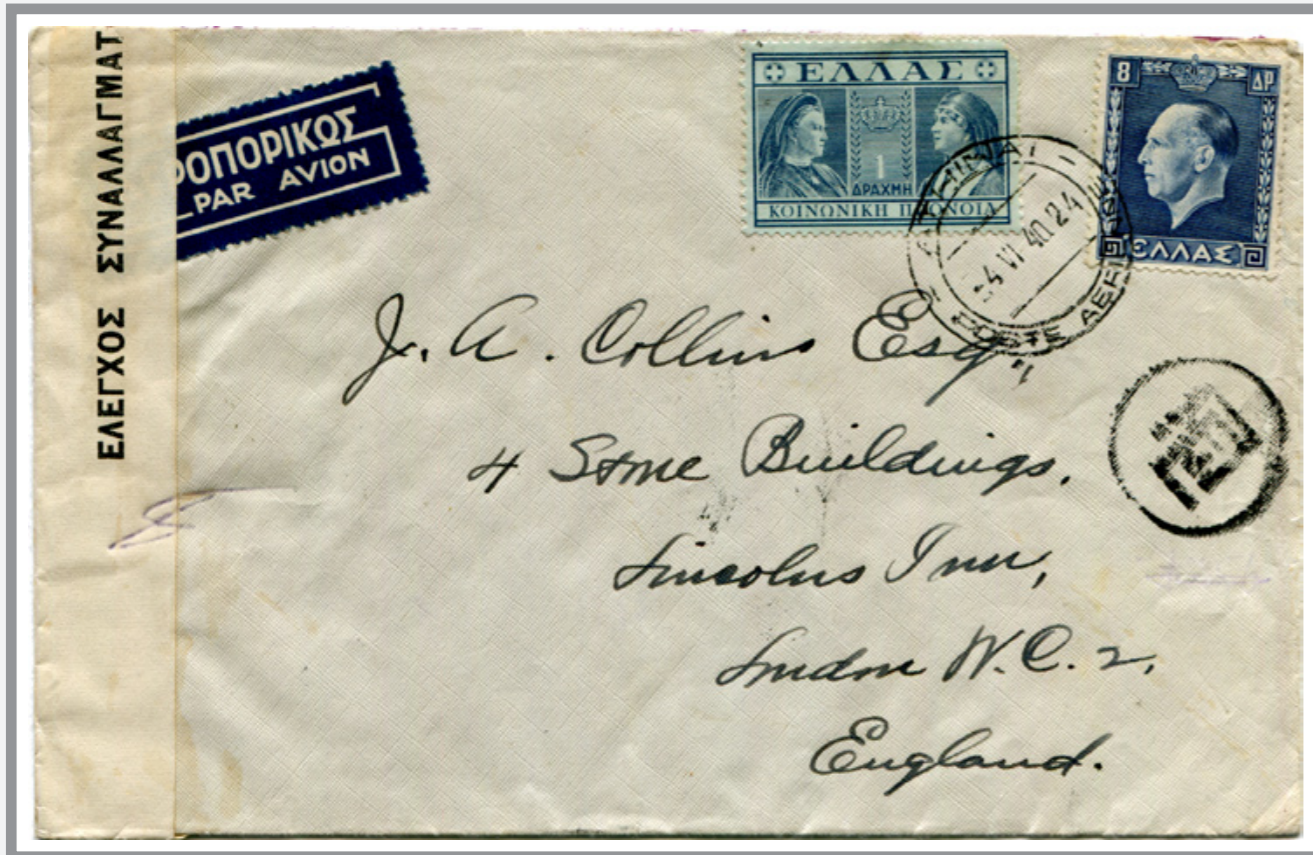 ΕΛΕΓΧΟΣ ΣΥΝΑΛΛΑΓΜΑΤ
ΡΟΠΟΡΙΚΩΣ
PAR AVION
ΕΛΛΑΣ
1
ΔΡΑΧΜΗ
ΚΟΙΝΩΝΙΚΗ
8 ΔΡ
ΕΛΛΑΣ
VI 40.24
POSTE
J. A. Collins Esq.,
4 Stone Buildings,
Lincolns Inn,
London W.C. 2,
England.